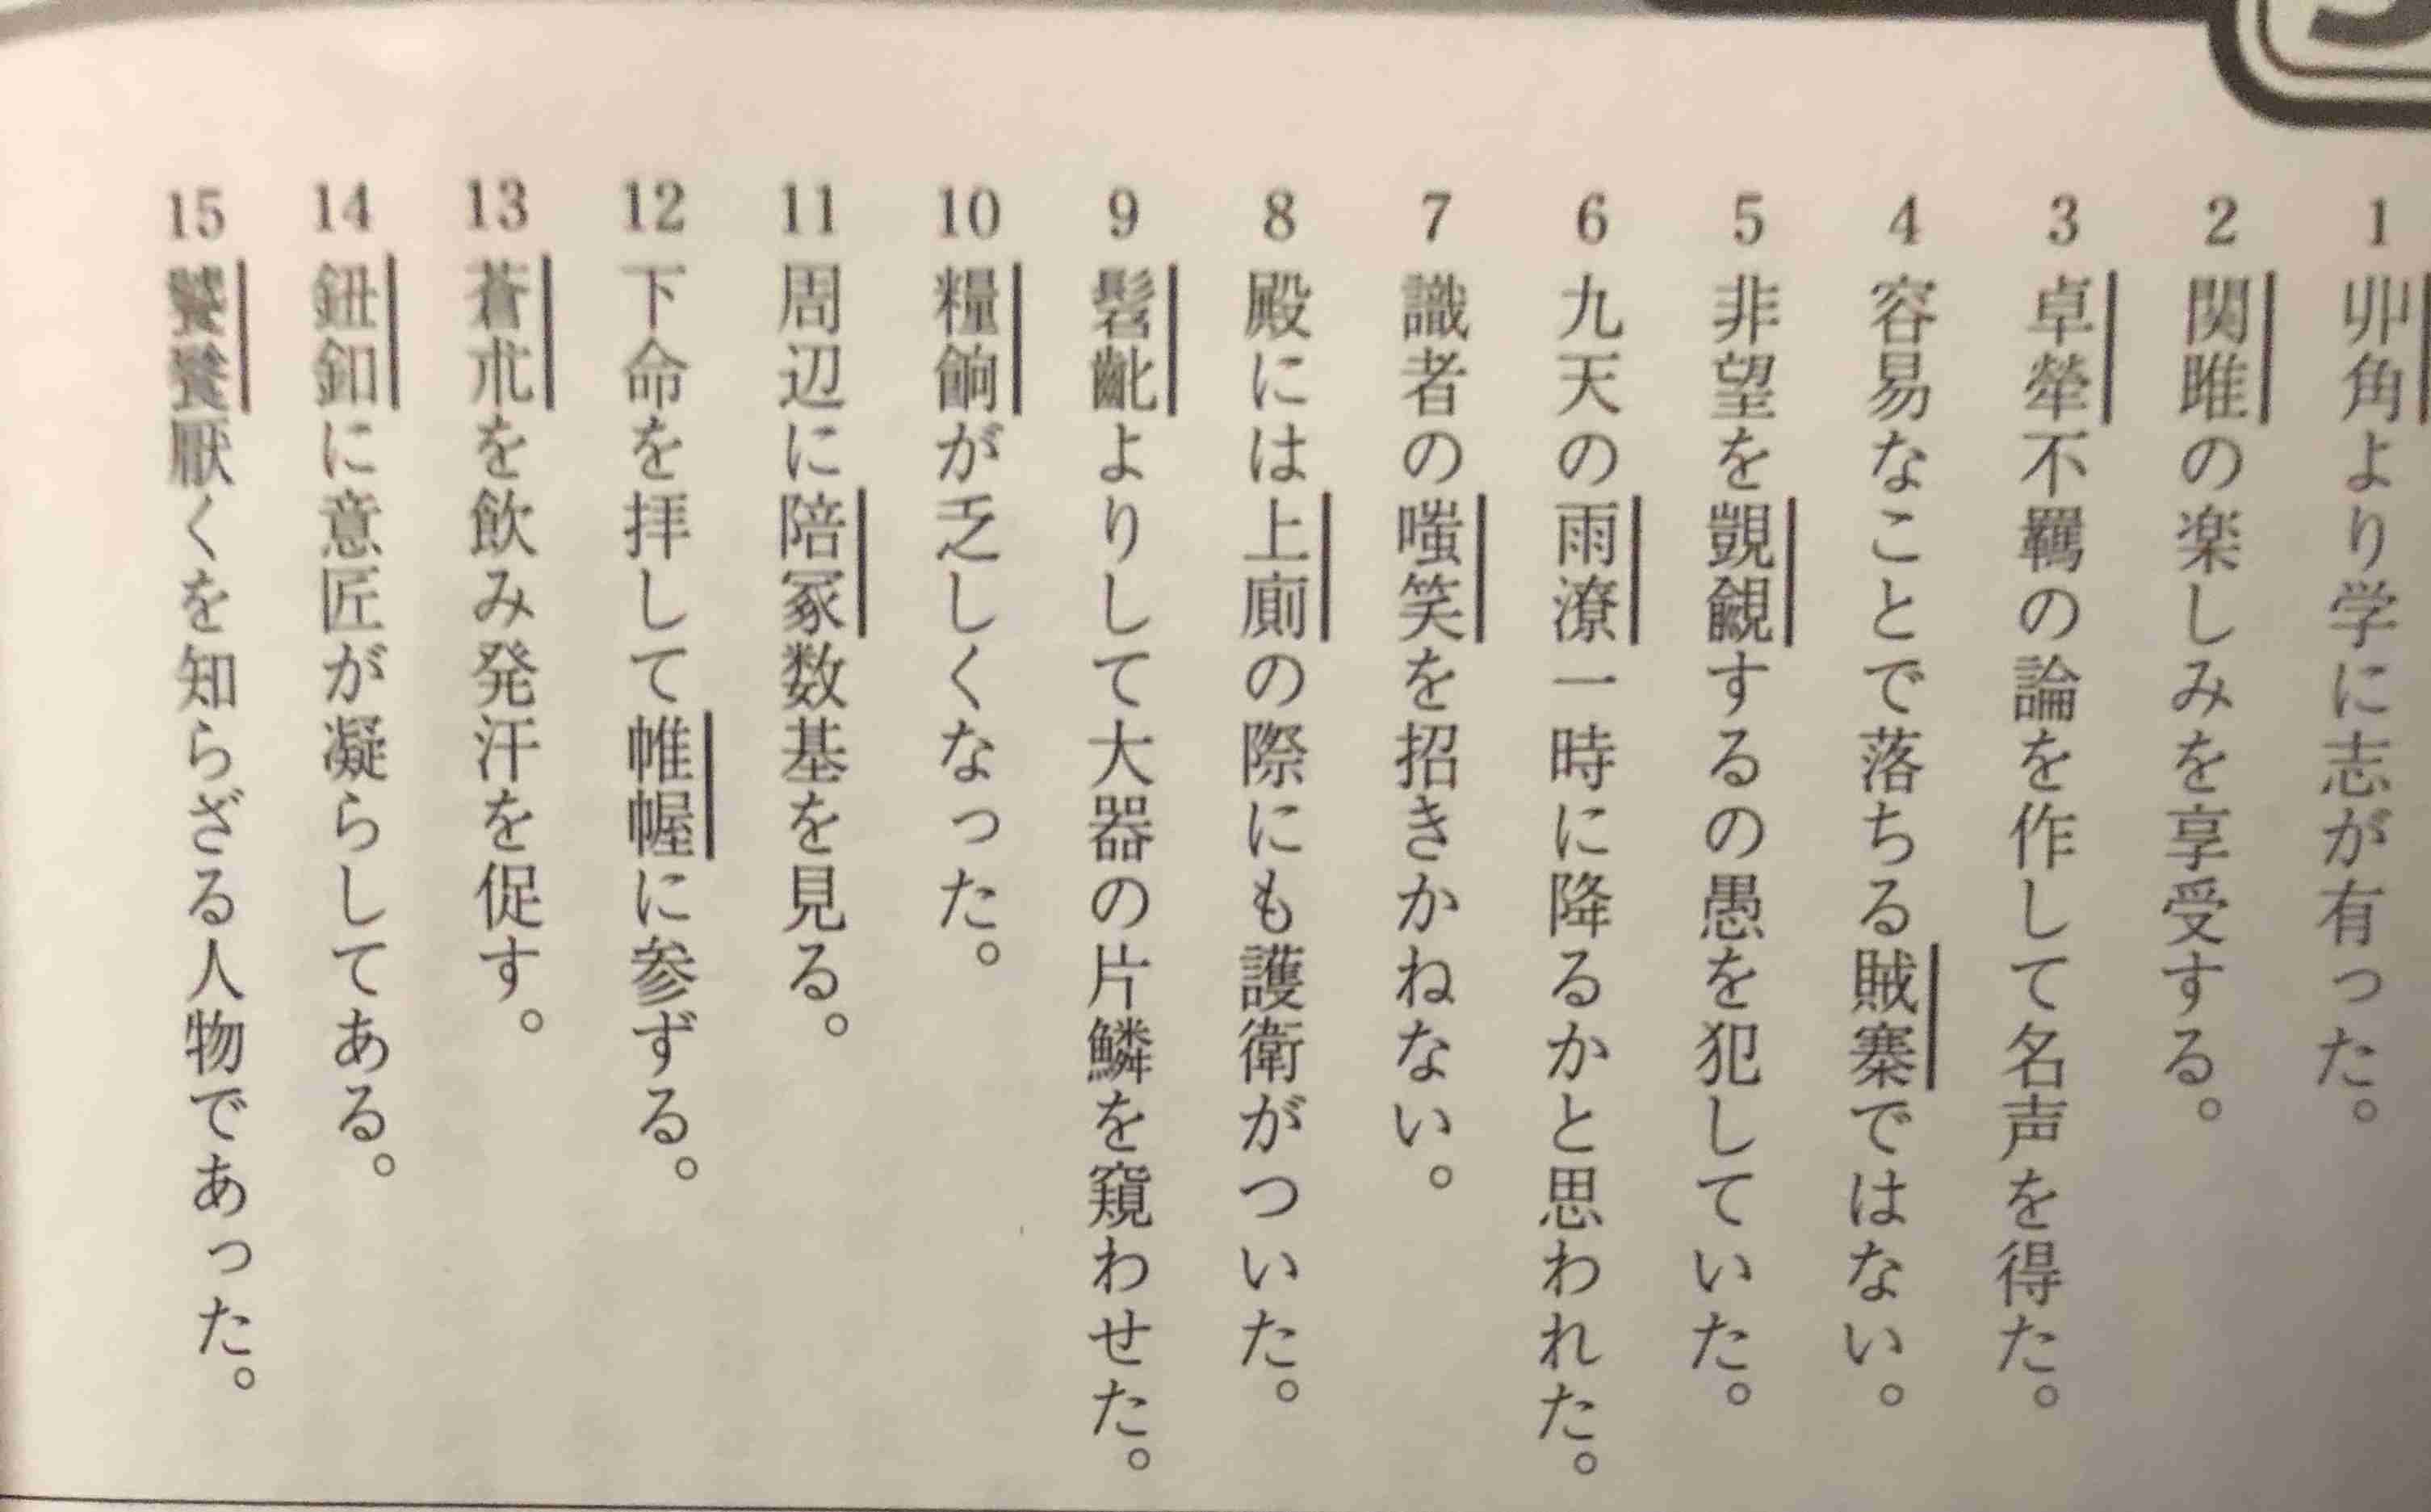 1 丱角より学に志が有った。
2 関雎の楽しみを享受する。
3 卓犖不羈の論を作して名声を得た。
4 容易なことで落ちる賊寨ではない。
5 非望を覬覦するの愚を犯していた。
6 九天の雨潦一時に降るかと思われた。
7 識者の嗤笑を招きかねない。
8 殿には上廁の際にも護衛がついた。
9 髫齔よりして大器の片鱗を窺わせた。
10 糧餉が乏しくなった。
11 周辺に陪冢数基を見る。
12 下命を拝して帷幄に参ずる。
13 蒼朮を飲み発汗を促す。
14 鈕釦に意匠が凝らしてある。
15 饕餮厭くを知らざる人物であった。